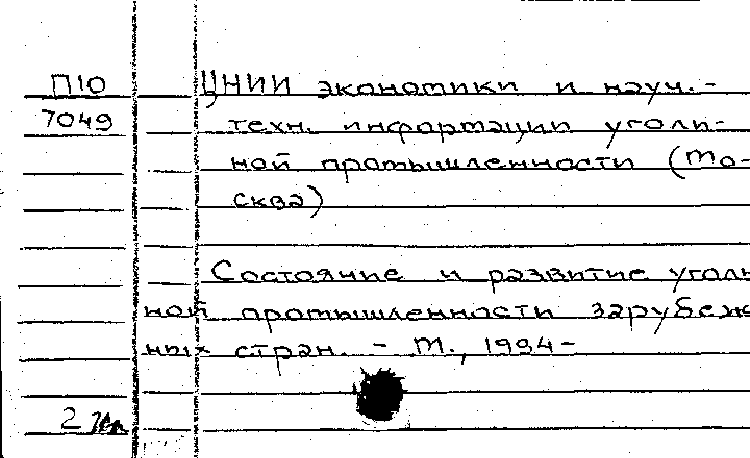 П10 ЦНИИ экономики и науч.-
7049 техн. информации уголь-
ной промышленности (Мо-
сква)
Состояние и развитие уголь
ной промышленности зарубеж
ных стран. - М., 1994-
2